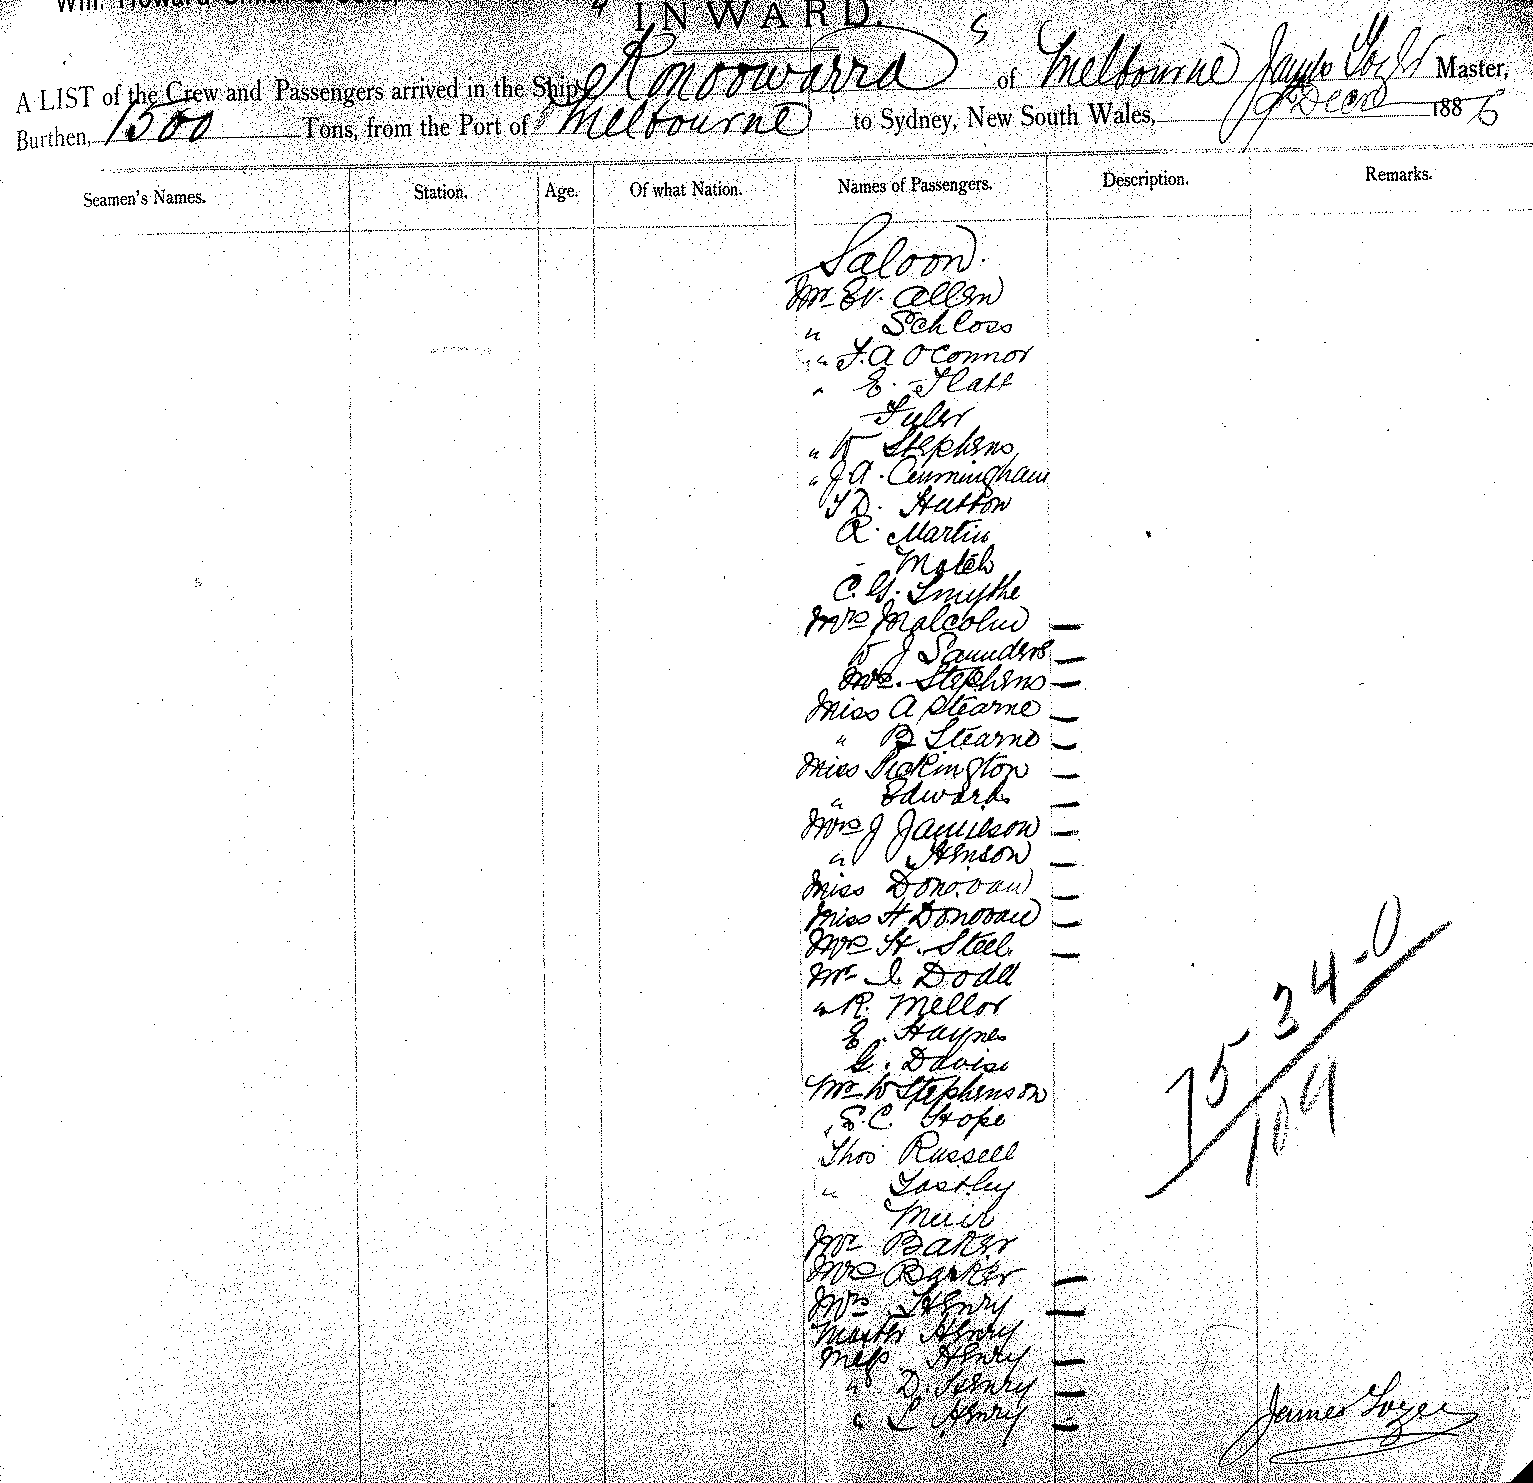 INWARD.
A LIST of the Crew and Passengers arrived in the Ship Konoowarra of Melbourne James Master,
Burthen, 1500 Tons, from the Port of Melbourne to Sydney, New South Wales, Decr 1886
Seamen's Names. Station. Age. Of what Nation. Names of Passengers. Description. Remarks.
Saloon.
Mr Ev. Allen
" Schloss
" F. A O'Connor
" E. Flatt
Fuler
" W Stephens
" J A. Cunningham
T D. Hutton
R. Martin
C. G. Smythe
Mrs Malcolm —
W J Saunders —
Mrs. Stephens —
Miss A Stearne —
" B Stearne —
Miss Pickington —
" Edwards —
Mrs J Jamieson —
" Henson —
Miss Donovan —
Miss H Donovan —
Mrs H. Steel —
Mr I Dodd
" R. Mellor
E. Haynes
G. Davise
Mr W Stephenson
" E. C. Hope
Thos Russell
"
Muir
Mr Baker
Mrs Barker —
Mrs Henry —
Master Henry
Miss Henry —
" D. Henry —
" L Henry —
75 34-0
109
James Tozer